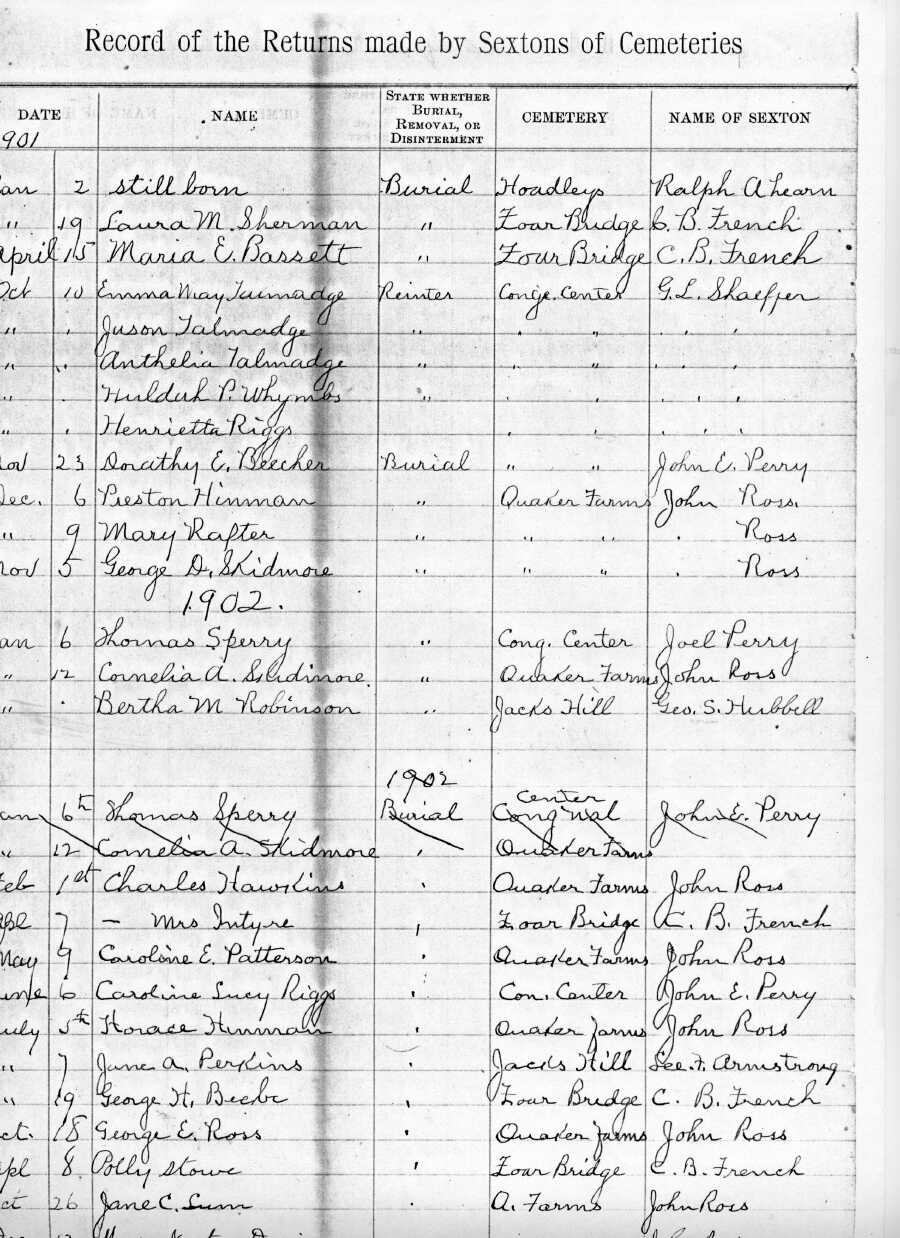 Record of the Returns made by Sextons of Cemeteries
DATE NAME STATE WHETHER BURIAL, REMOVAL, OR DISINTERMENT CEMETERY NAME OF SEXTON
901
an 2 still born Burial Hoadleys Ralph Ahearn
" 19 Laura M. Sherman " Zoar Bridge C. B. French
April 15 Maria E. Bassett " Zoar Bridge C. B. French
Oct 10 Emma May Talmadge Reinter Conge. Center G. L. Shaeffer
" . Juson Talmadge " " " " "
" " Anthelia Talmadge " " " " "
" . Huldah P. Whymbs " " " " "
" . Henrietta Riggs " " " "
Nov 23 Dorathy E. Beecher Burial " " John E. Perry
Dec. 6 Preston Hinman " Quaker Farms John Ross.
" 9 Mary Rafter " " " . Ross
Nov 5 George D. Skidmore " " " . Ross
1902.
an 6 Thomas Sperry " Cong. Center Joel Perry
" 12 Cornelia A. Skidmore. " Quaker Farms John Ross
" . Bertha M Robinson " Jacks Hill Geo. S. Hubbell
1902
an 6th Thomas Sperry Burial Cong'nal center John E. Perry
" 12 Cornelia A. Skidmore " Quaker Farms
Feb 1st Charles Hawkins " Quaker Farms John Ross
Apl 7 — Mrs Intyre " Zoar Bridge C. B. French
May 9 Caroline E. Patterson " Quaker Farms John Ross
une 6 Caroline Lucy Riggs " Con. Center John E. Perry
uly 5th Horace Hinman " Quaker farms John Ross
" 7 Jane A. Perkins " Jacks Hill Armstrong
" 19 George H. Beebe " Zoar Bridge C. B. French
ct. 18 George E. Ross " Quaker farms John Ross
pl 8 Polly Stowe " Zoar Bridge C. B. French
ct 26 Jane C. Lum " Q. Farms John Ross